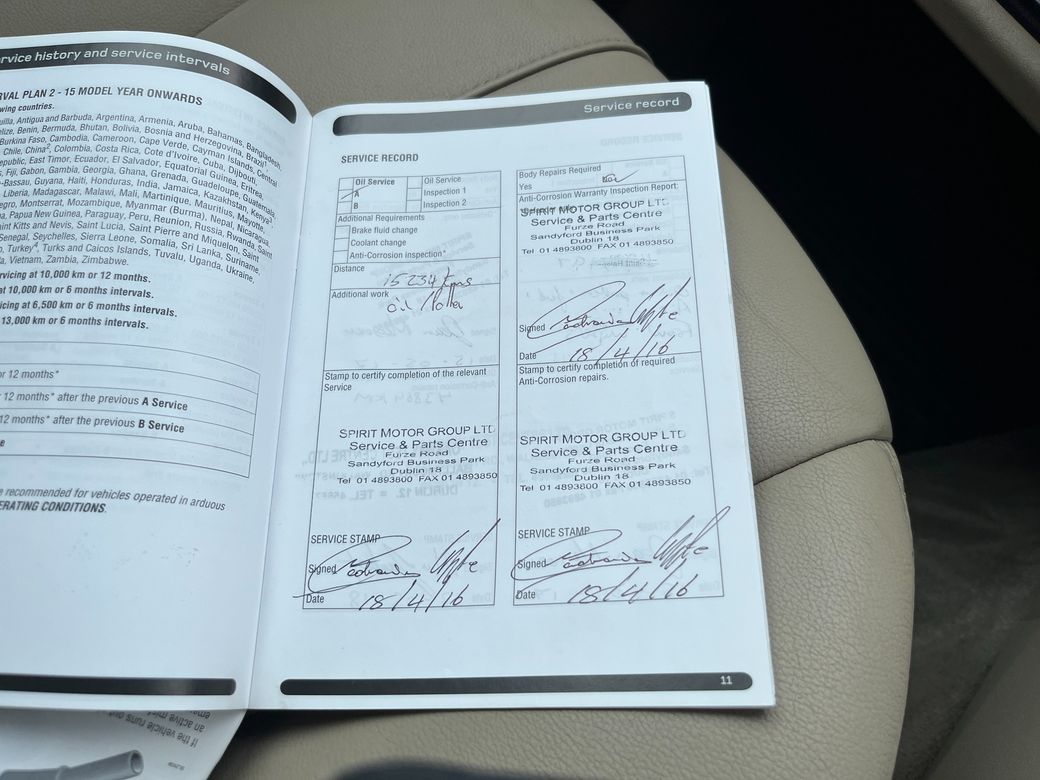 rvice history and service intervals
RVAL PLAN 2 - 15 MODEL YEAR ONWARDS
wing countries.
uilla, Antigua and Barbuda, Argentina, Armenia, Aruba, Bahamas, Bangladesh,
elize, Benin, Bermuda, Bhutan, Bolivia, Bosnia and Herzegovina, Brazil
Burkina Faso, Cambodia, Cameroon, Cape Verde, Cayman Islands, Central
Chile, China², Colombia, Costa Rica, Cote d'Ivoire, Cuba, Djibouti,
epublic, East Timor, Ecuador, El Salvador, Equatorial Guinea, Eritrea,
s, Fiji, Gabon, Gambia, Georgia, Ghana, Grenada, Guadeloupe, Guatemala,
-Bassau, Guyana, Haiti, Honduras, India, Jamaica, Kazakhstan, Kenya
Liberia, Madagascar, Malawi, Mali, Martinique, Mauritius, Mayotte,
egro, Montserrat, Mozambique, Myanmar (Burma), Nepal, Nicaragua,
a, Papua New Guinea, Paraguay, Peru, Reunion, Russia, Rwanda, Saint
int Kitts and Nevis, Saint Lucia, Saint Pierre and Miquelon, Saint
Senegal, Seychelles, Sierra Leone, Somalia, Sri Lanka, Suriname,
Turkey⁴, Turks and Caicos Islands, Tuvalu, Uganda, Ukraine,
la, Vietnam, Zambia, Zimbabwe.
rvicing at 10,000 km or 12 months.
at 10,000 km or 6 months intervals.
icing at 6,500 km or 6 months intervals.
13,000 km or 6 months intervals.
or 12 months*
12 months* after the previous A Service
12 months* after the previous B Service
e recommended for vehicles operated in arduous
ERATING CONDITIONS.
If the vehicle runs out
an active
Service record
SERVICE RECORD
Oil Service
A
B
Oil Service
Inspection 1
Inspection 2
Additional Requirements
Brake fluid change
Coolant change
Anti-Corrosion inspection*
Distance
15234 kms
Additional work
oil
Stamp to certify completion of the relevant
Service
SPIRIT MOTOR GROUP LTD
Service & Parts Centre
Furze Road
Sandyford Business Park
Dublin 18
Tel 01 4893800 FAX 01 4893850
SERVICE STAMP
Signed
Date 18/4/16
Body Repairs Required
Yes No
Anti-Corrosion Warranty Inspection Report:
SPIRIT MOTOR GROUP LTD
Service & Parts Centre
Furze Road
Sandyford Business Park
Dublin 18
Tel 01 4893800 FAX 01 4893850
Signed
Date 18/4/16
Stamp to certify completion of required
Anti-Corrosion repairs.
SPIRIT MOTOR GROUP LTD
Service & Parts Centre
Furze Road
Sandyford Business Park
Dublin 18
Tel 01 4893800 FAX 01 4893850
SERVICE STAMP
Signed
Date 18/4/16
11